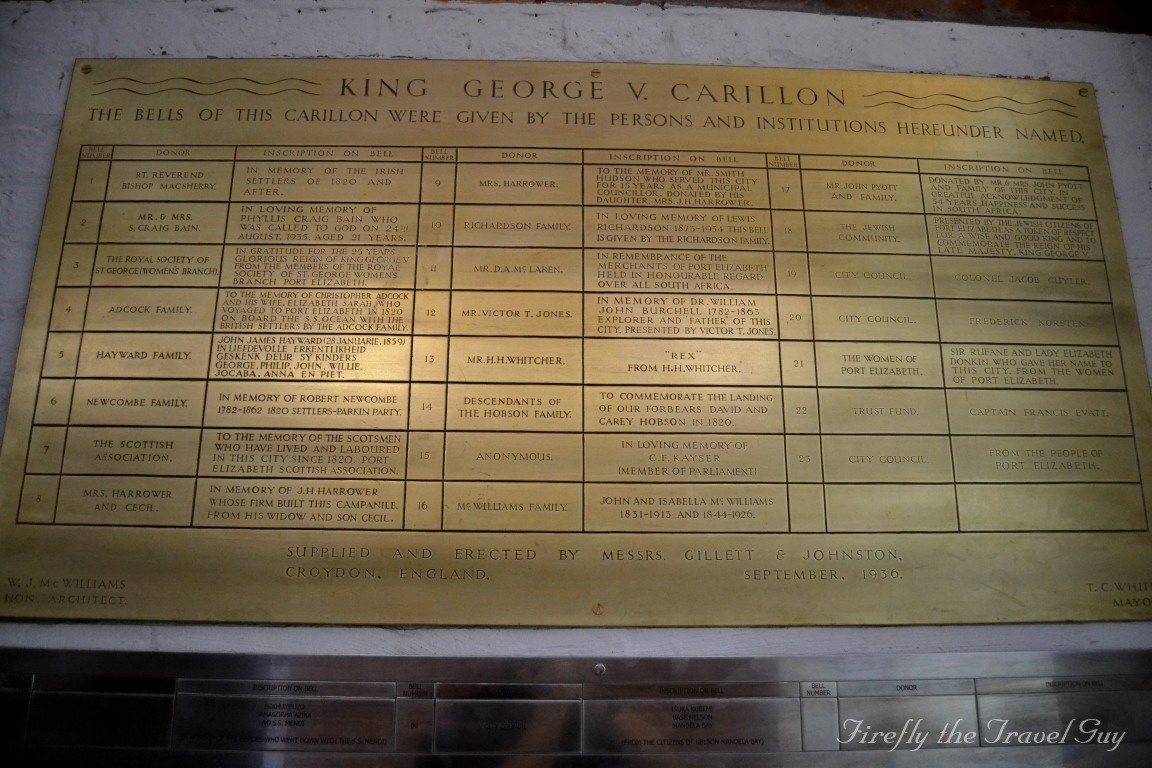 KING GEORGE V. CARILLON
THE BELLS OF THIS CARILLON WERE GIVEN BY THE PERSONS AND INSTITUTIONS HEREUNDER NAMED.
BELL NUMBER DONOR INSCRIPTION ON BELL
1
RT. REVEREND
BISHOP MACSHERRY.
IN MEMORY OF THE IRISH
SETTLERS OF 1820 AND
AFTER.
2
MR. & MRS.
S. CRAIG BAIN.
IN LOVING MEMORY OF
PHYLLIS CRAIG BAIN WHO
WAS CALLED TO GOD ON 24TH
AUGUST, 1935, AGED 21 YEARS.
3
THE ROYAL SOCIETY OF
ST GEORGE (WOMEN'S BRANCH).
IN GRATITUDE FOR THE 25 YEARS
GLORIOUS REIGN OF KING GEORGE V.
FROM THE MEMBERS OF THE ROYAL
SOCIETY OF ST. GEORGE WOMEN'S
BRANCH PORT ELIZABETH.
4
ADCOCK FAMILY.
TO THE MEMORY OF CHRISTOPHER ADCOCK
AND HIS WIFE, ELIZABETH SARAH, WHO
VOYAGED TO PORT ELIZABETH IN 1820
ON BOARD THE S.S. OCEAN WITH THE
BRITISH SETTLERS BY THE ADCOCK FAMILY.
5
HAYWARD FAMILY.
JOHN JAMES HAYWARD (28. JANUARIE, 1859)
IN LIEFDEVOLLE ERKENTLIKHEID
GESKENK DEUR SY KINDERS
GEORGE, PHILIP, JOHN, WILLIE,
JOCABA, ANNA EN PIET.
6
NEWCOMBE FAMILY.
IN MEMORY OF ROBERT NEWCOMBE
1782-1862 1820 SETTLERS-PARKIN PARTY.
7
THE SCOTTISH
ASSOCIATION.
TO THE MEMORY OF THE SCOTSMEN
WHO HAVE LIVED AND LABOURED
IN THIS CITY SINCE 1820. PORT
ELIZABETH SCOTTISH ASSOCIATION.
8
MRS. HARROWER
AND CECIL.
IN MEMORY OF J.H. HARROWER
WHOSE FIRM BUILT THIS CAMPANILE.
FROM HIS WIDOW AND SON CECIL.
BELL NUMBER DONOR INSCRIPTION ON BELL
9
MRS. HARROWER.
TO THE MEMORY OF MR. SMITH
HUDSON WHO SERVED THIS CITY
FOR 15 YEARS AS A MUNICIPAL
COUNCILLOR, DONATED BY HIS
DAUGHTER, MRS. J.H. HARROWER.
10
RICHARDSON FAMILY.
IN LOVING MEMORY OF LEWIS
RICHARDSON 1873-1934 THIS BELL
IS GIVEN BY THE RICHARDSON FAMILY.
11
MR. D.A. Mc LAREN.
IN REMEMBRANCE OF THE
MERCHANTS OF PORT ELIZABETH
HELD IN HONOURABLE REGARD
OVER ALL SOUTH AFRICA.
12
MR. VICTOR T. JONES.
IN MEMORY OF DR. WILLIAM
JOHN BURCHELL 1782-1863
EXPLORER AND "FATHER" OF THIS
CITY, PRESENTED BY VICTOR T. JONES.
13
MR. H.H. WHITCHER.
"REX"
FROM H.H. WHITCHER.
14
DESCENDANTS OF
THE HOBSON FAMILY.
TO COMMEMORATE THE LANDING
OF OUR FORBEARS DAVID AND
CAREY HOBSON IN 1820.
15
ANONYMOUS.
IN LOVING MEMORY OF
C.F. KAYSER
(MEMBER OF PARLIAMENT)
16
Mc WILLIAMS FAMILY.
JOHN AND ISABELLA Mc WILLIAMS
1831-1913 AND 1844-1926.
BELL NUMBER DONOR INSCRIPTION ON BELL
17
MR. JOHN PYOTT
AND FAMILY.
DONATED BY MR. & MRS. JOHN PYOTT
AND FAMILY OF THIS CITY, IN
GREATFUL ACKNOWLEDGMENT OF
54 YEARS HAPPINESS AND SUCCESS
IN SOUTH AFRICA.
18
THE JEWISH
COMMUNITY.
PRESENTED BY THE JEWISH CITIZENS OF
PORT ELIZABETH, AS A TOKEN OF RESPECT
FOR A WISE AND GOOD KING AND TO
COMMEMORATE THE REIGN OF HIS
LATE MAJESTY, KING GEORGE V.
19
CITY COUNCIL.
COLONEL JACOB CUYLER.
20
CITY COUNCIL.
FREDERICK KORSTEN.
21
THE WOMEN OF
PORT ELIZABETH.
SIR RUFANE AND LADY ELIZABETH
DONKIN WHO GAVE HER NAME TO
THIS CITY. FROM THE WOMEN
OF PORT ELIZABETH.
22
TRUST FUND.
CAPTAIN FRANCIS EVATT.
23
CITY COUNCIL.
FROM THE PEOPLE OF
PORT ELIZABETH.
SUPPLIED AND ERECTED BY MESSRS. GILLETT & JOHNSTON.
CROYDON, ENGLAND. SEPTEMBER, 1936.
W. J. Mc WILLIAMS
HON. ARCHITECT.
T. C. WHIT
MAYO
INSCRIPTION ON BELL
BELL NUMBER
INSCRIPTION ON BELL
BELL NUMBER
DONOR
INSCRIPTION ON BELL
WHO WENT DOWN WITH THE S.S. MENDI)
NELSON
MANDELA BAY
(FROM THE CITIZENS OF NELSON MANDELA BAY)
Firefly the Travel Guy